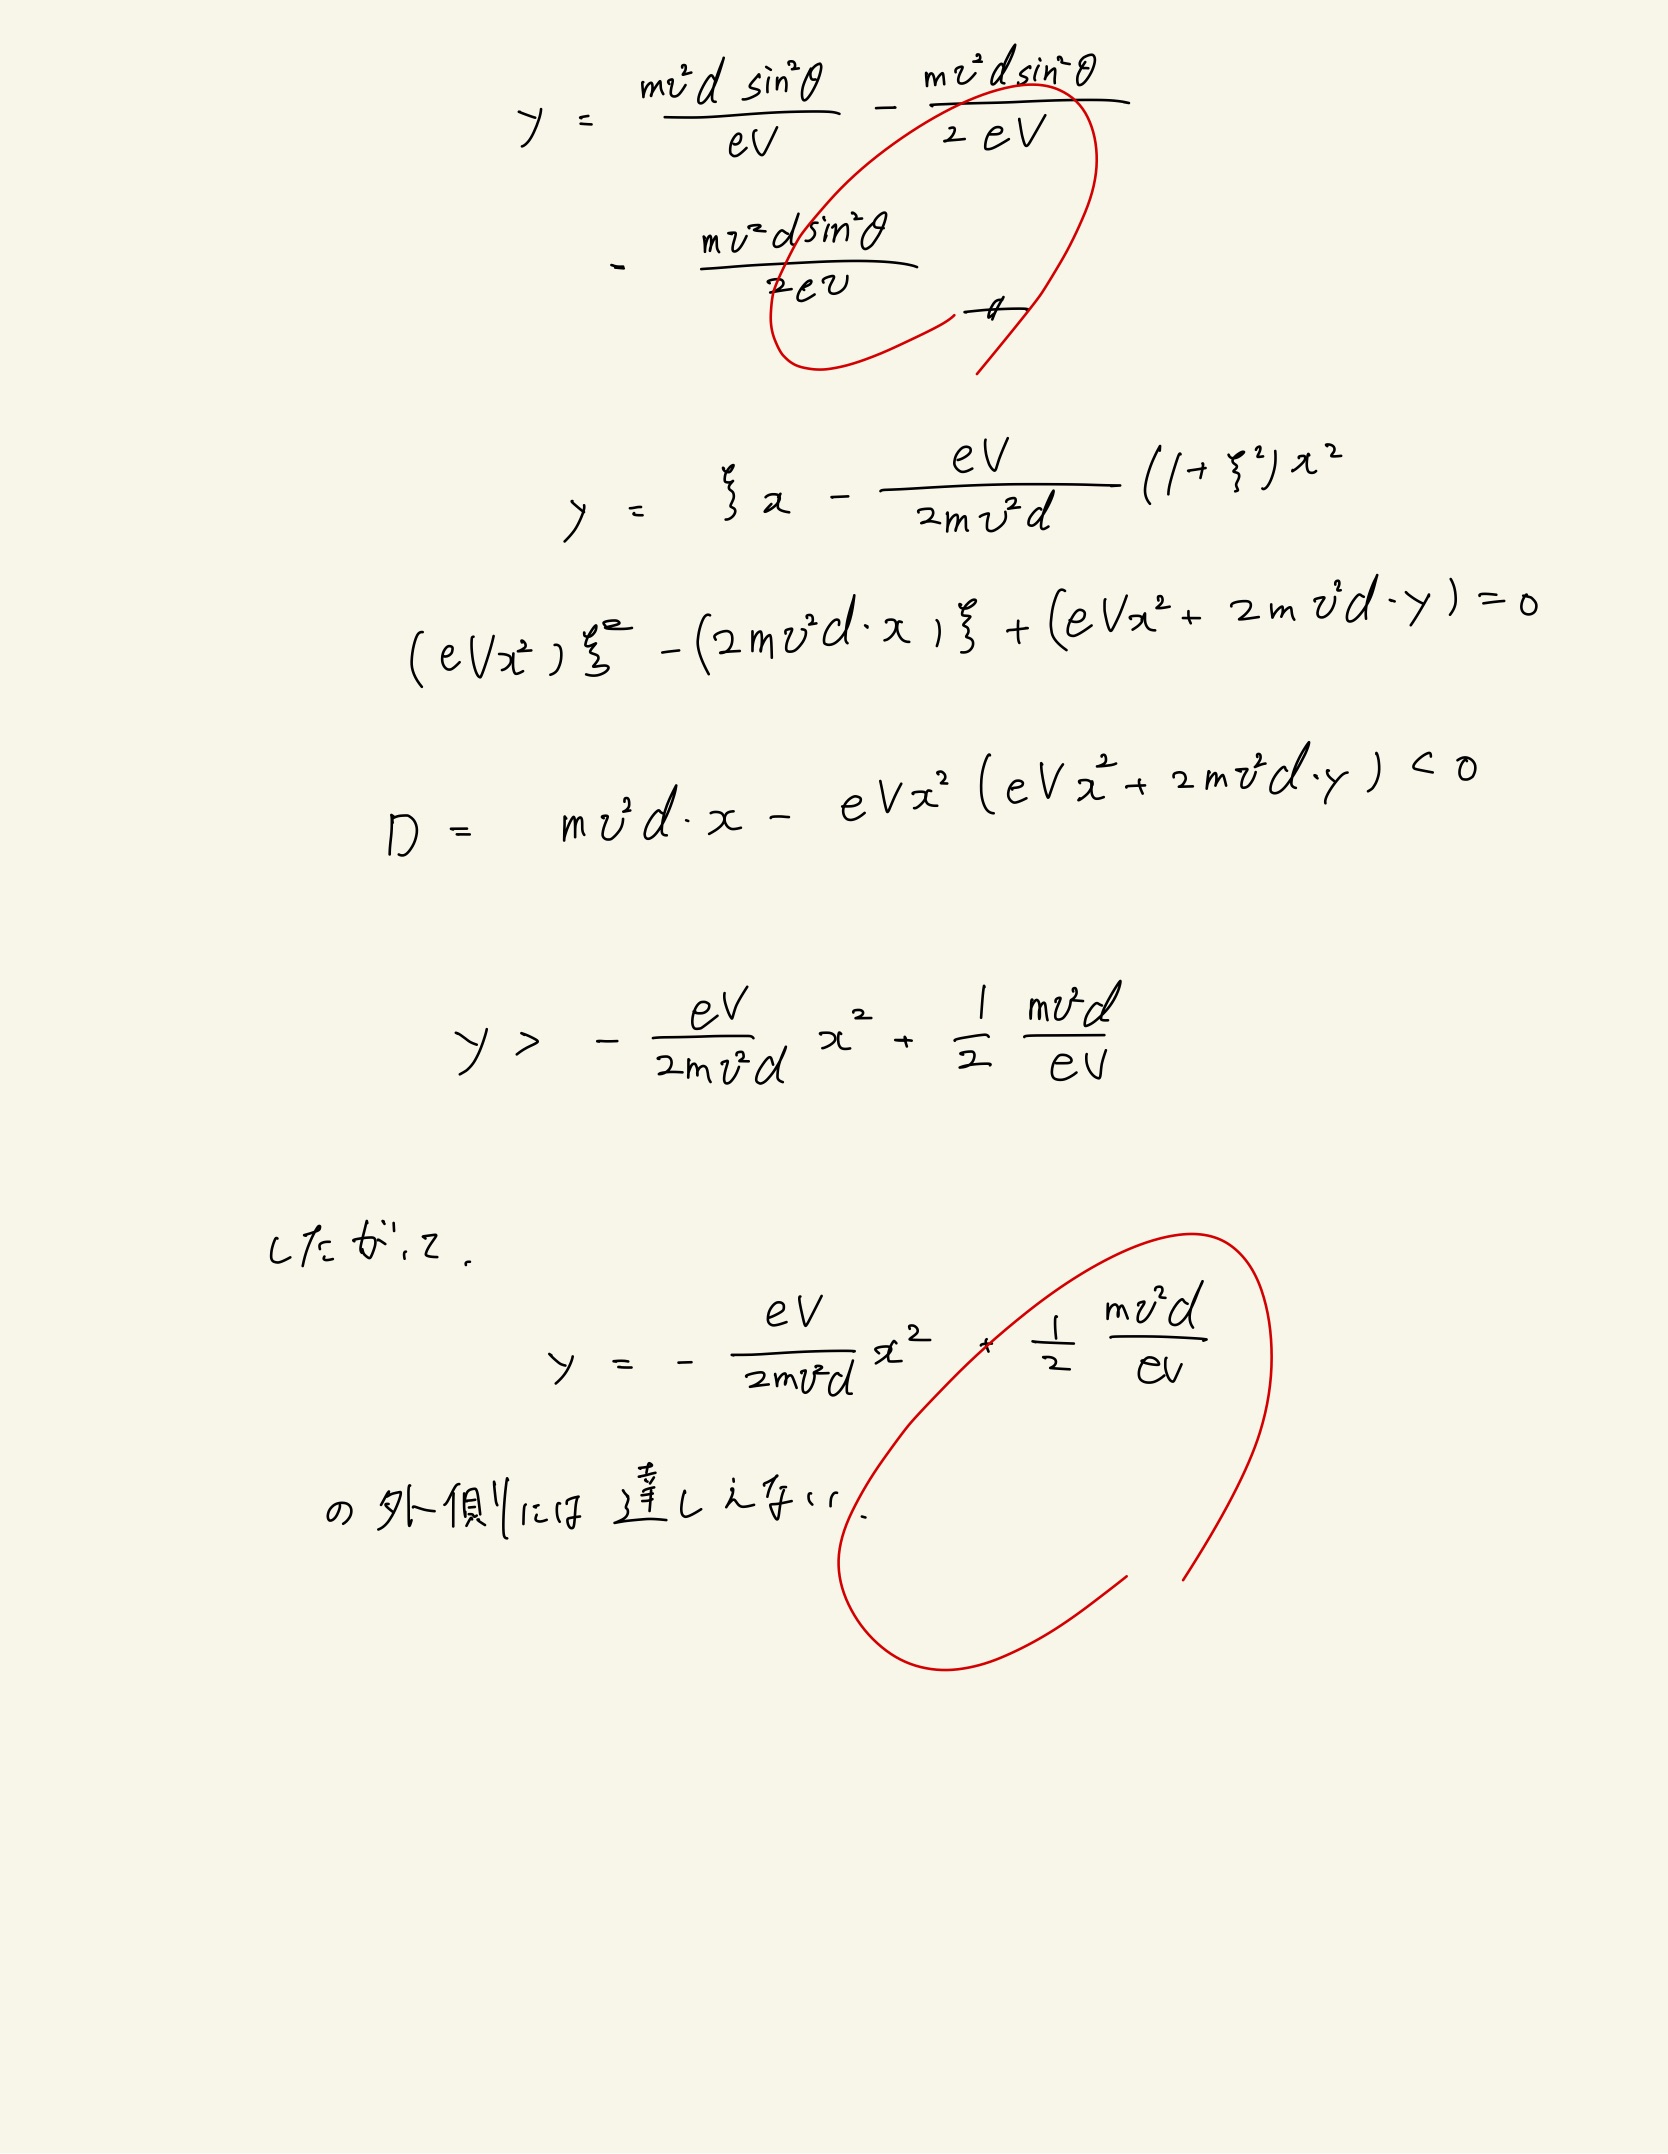 y = mv²d sin²θ / eV - mv²d sin²θ / 2eV
- mv²d sin²θ / 2ev
y = ξx - eV / 2mv²d (1+ξ²)x²
(eVx²)ξ² - (2mv²d·x)ξ + (eVx² + 2mv²d·y) = 0
D = mv²d·x - eVx² (eVx² + 2mv²d·y) < 0
y > - eV / 2mv²d x² + 1/2 mv²d / eV
したがって.
y = - eV / 2mv²d x² + 1/2 mv²d / eV
の外側には達しえない.